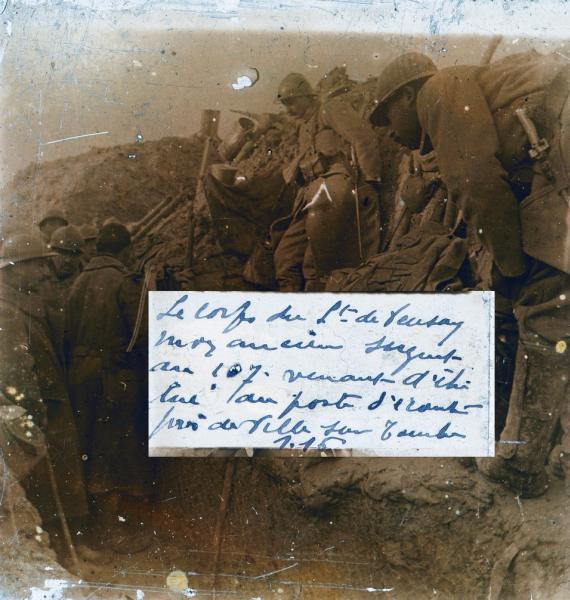 Le corps du Lt de Pensay
mon ancien sergent
au 107. venant d'être
tué au poste d'écoute
près de Ville sur Tourbe
1.16